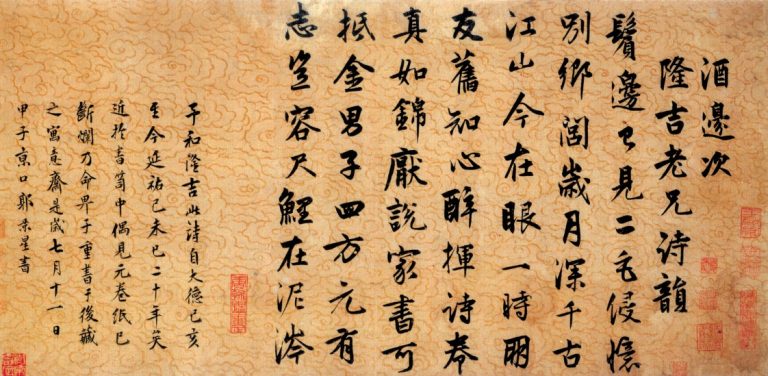 酒邊次
隆吉老兄詩韻
鬢邊已見二毛侵憶
別鄉閭歲月深千古
江山今在眼一時朋
友舊知心醉揮詩卷
真如錦厭說家書可
抵金男子四方元有
志豈容尺鯉在泥涔
予和隆吉此詩自大德己亥
至今延祐己未已二十年矣
近於書笥中偶見元卷紙已
斷爛乃命畀子重書于後藏
之寓意齋是歲七月十一日
甲子京口郭景星書